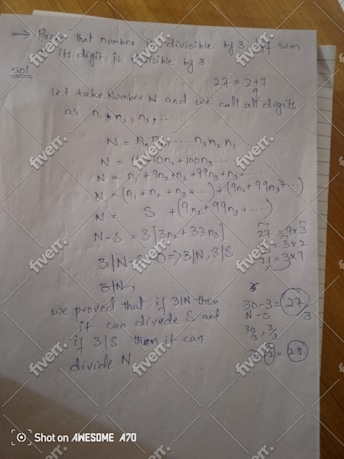 → Prove that number is divisible by 3, if sum
its digit is divisible by 3
30!
27 = 2+7
9
let take number N and we call all digits
as n₁, n₂, n₃, ...
N = n₃ n₂ n₁
N = 10n₂ + 100n₃ ...
N = n₁ + 9n₂ + n₂ + 99n₃ + n₃
N = (n₁ + n₂ + n₃ ...) + (9n₂ + 99n₃ ...)
N = S + (9n₂ + 99n₃ ...)
N-S = 3[3n₂ + 33n₃]
27 = 9×3
= 3×2
21 = 3×7
3|N-S ⇒ 3|N, 3|S
we proved that if 3|N then
it can divide S and
if 3|S then it can
divide N
30-3 = 27
N-S
3
= 28
Shot on AWESOME A70
fiverr.